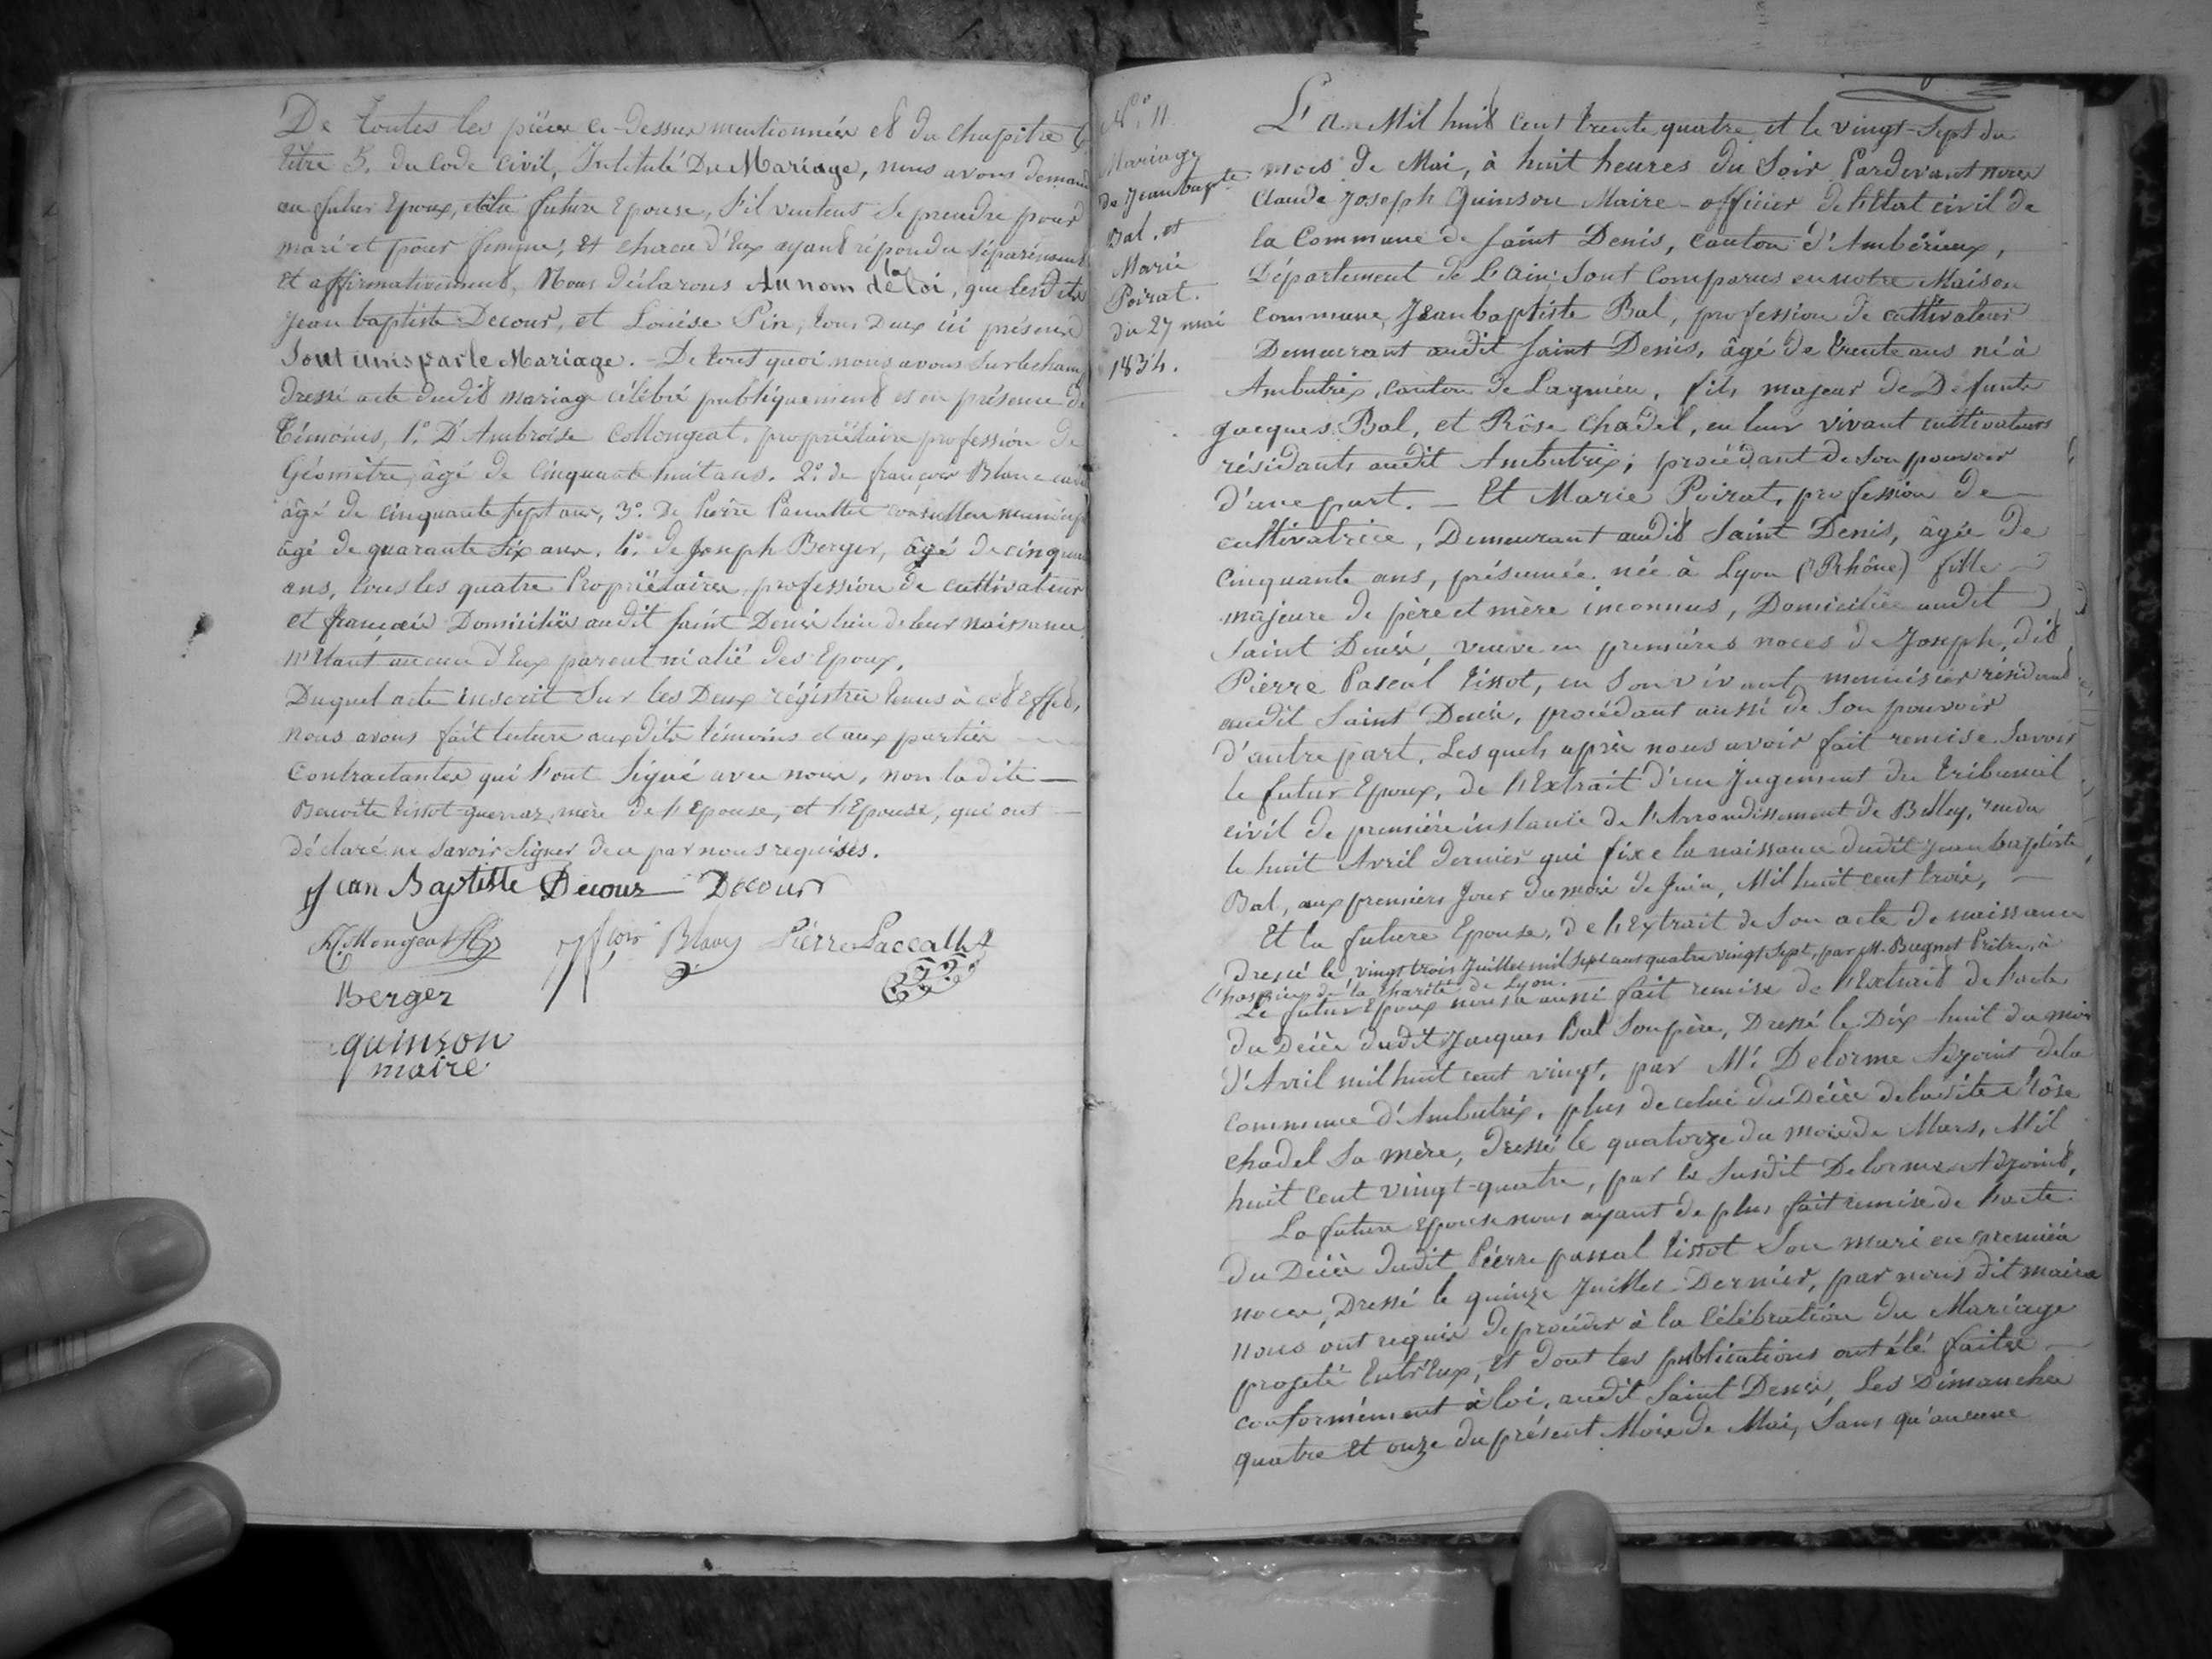 De toutes les pièces ci-dessus mentionnées et du chapitre 6
titre 5. du Code Civil, Intitulé Du Mariage, nous avons demand
au futur Epoux, et à la future Epouse, s'il veulent se prendre pour
mari et pour femme; Et chacun d'Eux ayant répondu séparément
Et affirmativement, Nous déclarons Au nom de la loi, que lesdits
Jean baptiste Decour, et Louise Pin, tous deux ici présens
Sont unis par le Mariage. — De tout quoi nous avons sur le cham
dressé acte dudit mariage célébré publiquement et en présence de
Témoins, 1.° D'Ambroise Collongeat, propriétaire profession de
Géomètre, âgé de Cinquante huit ans. 2.° de françois Blanc
âgé de cinquante sept ans, 3.° De Pierre
âgé de quarante six ans. 4.° de Joseph Berger, âgé de cinquan
ans, tous les quatre Propriétaires, profession de cultivateur
et françois Domiciliés audit saint Denis lieu de leur naissance
n'étant aucun d'Eux parent ni alié des Epoux.
Duquel acte inscrit Sur les Deux régistres tenus à cet Effet,
nous avons fait lecture auxdits témoins et aux parties
Contractantes qui l'ont signé avec nous, non ladite —
Benoite tissot-guerraz, mère de l'Epouse, et l'Epouse, qui ont —
déclaré ne savoir signer de ce par nous requises.
Jean Baptiste Decour Decour
Blanc Pierre
Berger
quinson
maire
N.° 11
Mariage
de Jean bapte
Bal, et
Marie
Poirat.
du 27 mai
1834.
L'an Mil huit Cent trente quatre et le vingt-Sept du
mois de Mai, à huit heures du Soir Pardevant nous
Claude Joseph Quinson Maire - officier de l'Etat civil de
la Commune de Saint Denis, Canton d'Ambérieux,
Département de l'Ain; Sont Comparus en notre Maison
Commune, Jean baptiste Bal, profession de cultivateur
Demeurant audit Saint Denis, âgé de trente ans né à
Ambutrix, Canton de Lagnieu, fils majeur de Defunts
Jacques Bal, et Rôse Chadel, en leur vivant cultivateurs
résidants audit Ambutrix; procédant de son pouvoir
d'une part. — Et Marie Poirat, profession de
cultivatrice, Demeurant audit Saint Denis, âgée de
Cinquante ans, présumée née à Lyon (Rhône) fille
majeure de père et mère inconnus, Domiciliée audit
Saint Denis, veuve en premières noces de Joseph, dit
Pierre Pascal tissot, en Son vivant menuisier résidant
audit Saint Denis, procédant aussi de Son pouvoir
d'autre part. Lesquels après nous avoir fait remise Savoir
le futur Epoux, de l'Extrait d'un Jugement du tribunal
civil de première instance de l'Arrondissement de Belley, rendu
le huit Avril dernier qui fixe la naissance dudit Jean baptiste
Bal, aux premiers Jour du mois de Juin, Mil huit cent trois, —
Et la future Epouse, de l'Extrait de Son acte de naissance
dressé le vingt trois Juillet mil sept cent quatre vingt Sept, par M. Bugnot Prêtre, à
l'hospice de la Charité de Lyon.
Le futur Epoux nous a aussi fait remise de l'Extrait de l'acte
du Décès dudit Jacques Bal Son père, Dressé le Dix-huit du mois
d'Avril mil huit cent vingt, par Mr. Delorme Adjoint de la
Commune d'Ambutrix, plus de celui du Décès de ladite Rôse
Chadel Sa mère, dressé le quatorze du mois de Mars, Mil
huit Cent vingt-quatre, par le susdit Delorme Adjoint,
La future Epouse nous ayant de plus fait remise de l'acte
du Décès dudit Pierre pascal tissot Son mari en premières
noces, Dressé le quinze Juillet Dernier, par nous dit maire
nous ont requis de procéder à la Célébration du Mariage
projeté Entr'Eux, Et dont les publications ont été faites
conformément à loi, audit Saint Denis, Les Dimanches
quatre Et onze du présent Mois de Mai, Sans qu'aucune